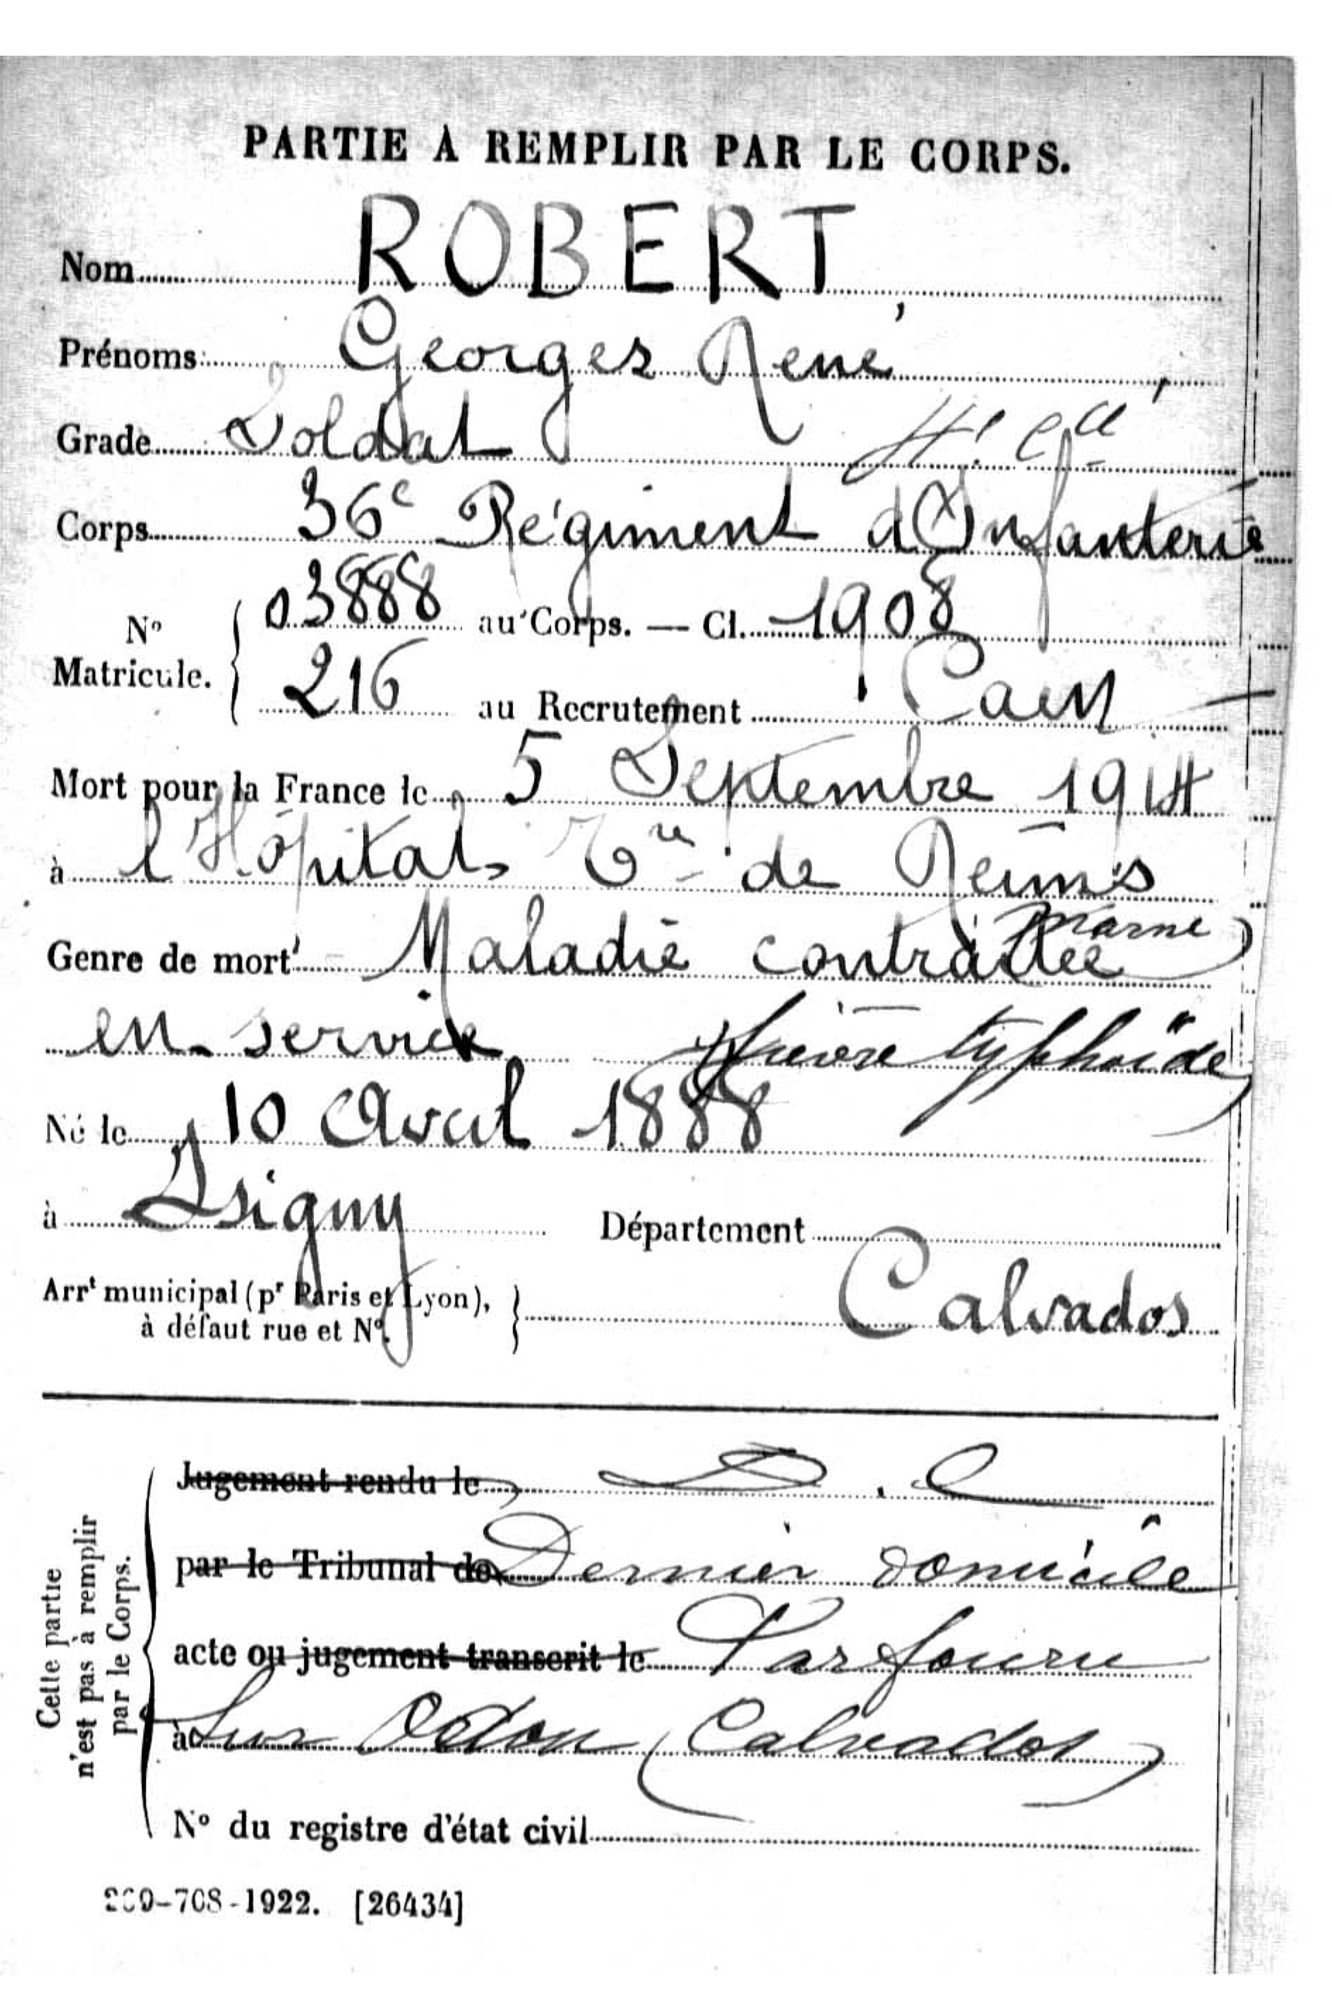 PARTIE À REMPLIR PAR LE CORPS.
Nom ROBERT,
Prénoms: Georges René,
Grade Soldat
Corps 36e Régiment d'Infanterie
No Matricule.
03888 au Corps. — Cl. 1908
216 au Recrutement Caen —
Mort pour la France le 5 Septembre 1914
à l'Hôpital de Reims
Marne)
Genre de mort Maladie contractée
en service fièvre typhoïde
Né le 10 Avril 1888
à Isigny Département
Calvados
Arrt municipal (pr Paris et Lyon),
à défaut rue et No.
Cette partie
n'est pas à remplir
par le Corps.
Jugement rendu le D. C
par le Tribunal de Dernier domicile
acte ou jugement transcrit le Parfouru
à Sur Odon (Calvados)
No du registre d'état civil
-708-1922. [26434]